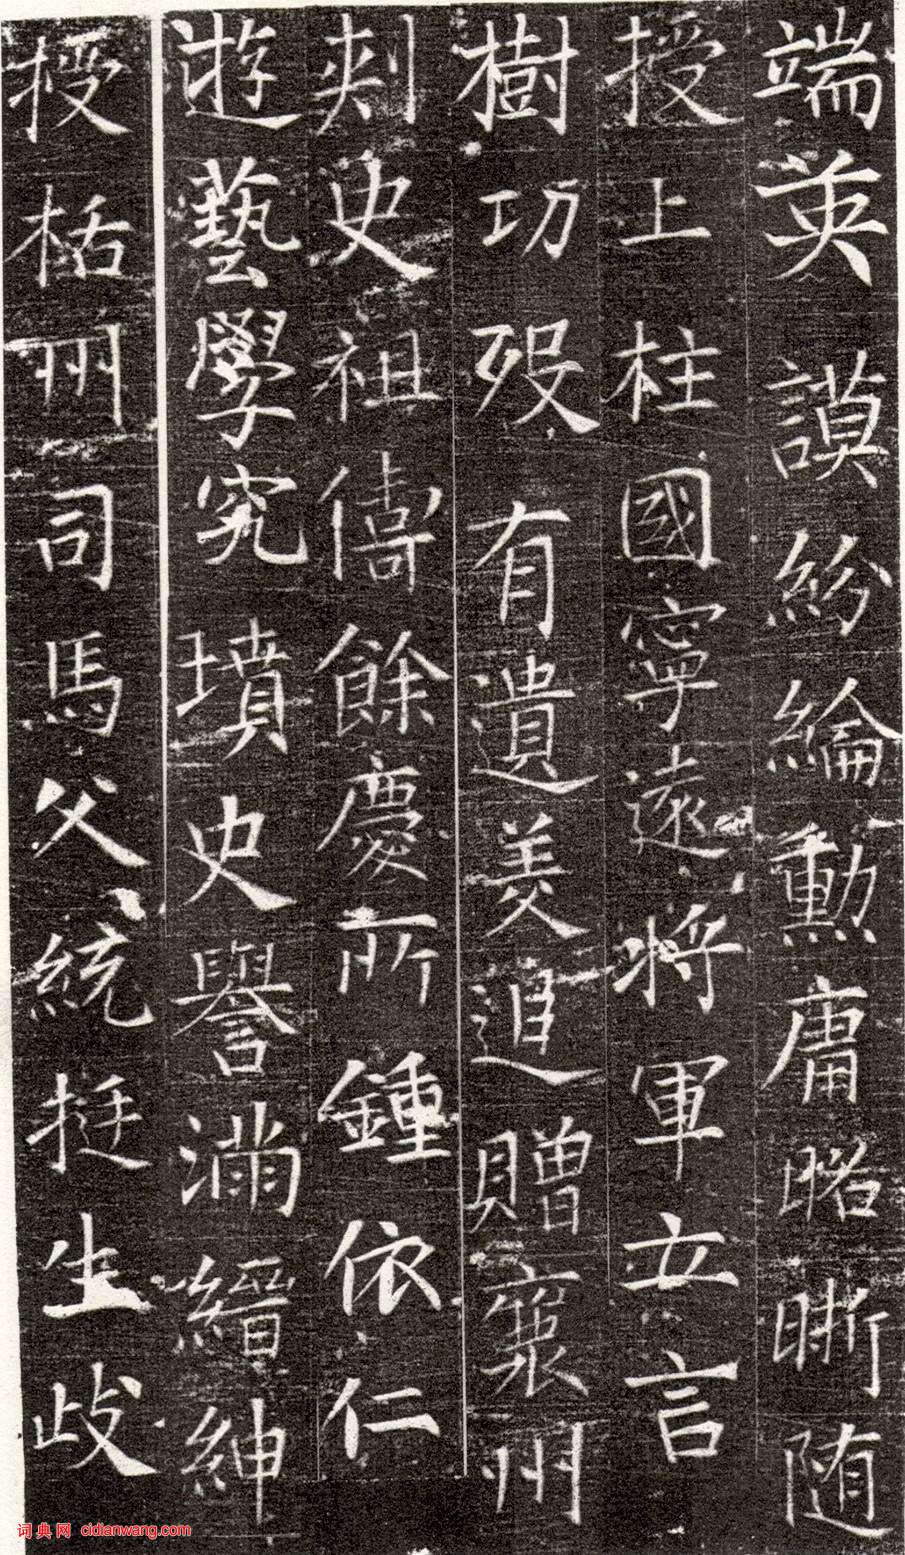 端英謨紛綸勳庸昭晰随
授上柱國寧遠將軍立言
樹功歿有遺美追贈襄州
刾史祖儔餘慶所鍾依仁
遊藝學究墳史譽滿縉紳
授栝州司馬父統挺生歧
词典网 cidianwang.com